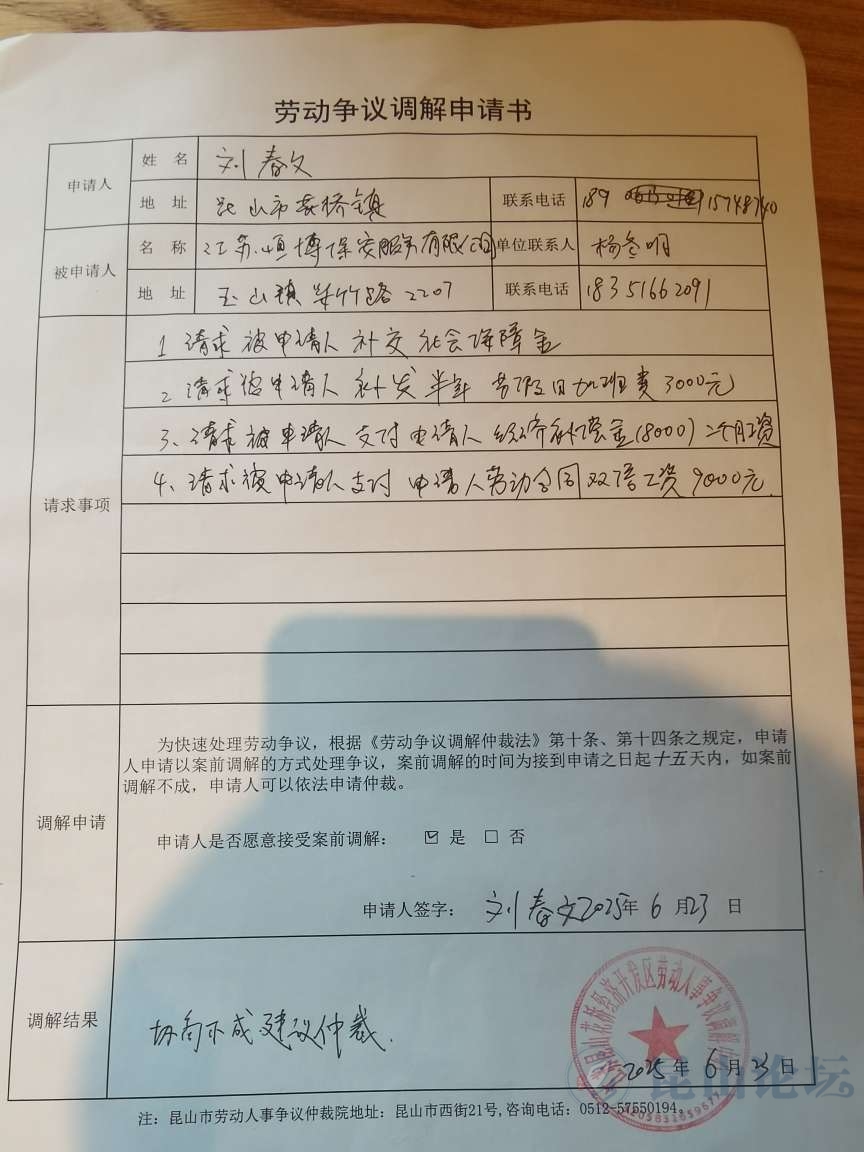 劳动争议调解申请书
申请人 姓 名 刘春文
地 址 昆山市花桥镇 联系电话 189 15748740
被申请人 名 称 江苏恒博保安服务有限公司 单位联系人 杨
地 址 玉山镇 紫竹路 2207 联系电话 18351662091
请求事项
1 请求被申请人补交社会保障金
2 请求被申请人补发半年节假日加班费3000元
3、请求被申请人支付申请人经济补偿金(8000)二个月工资
4、请求被申请人支付申请人劳动合同双倍工资9000元.
调解申请
为快速处理劳动争议，根据《劳动争议调解仲裁法》第十条、第十四条之规定，申请
人申请以案前调解的方式处理争议，案前调解的时间为接到申请之日起十五天内，如案前
调解不成，申请人可以依法申请仲裁。
申请人是否愿意接受案前调解： ☑ 是 □ 否
申请人签字： 刘春文 2025年 6 月23 日
调解结果
协商不成建议仲裁.
昆山花桥经济开发区劳动人事争议调解
2025 年 6 月 23 日
昆山论坛
注：昆山市劳动人事争议仲裁院地址：昆山市西街21号,咨询电话：0512-57550194。